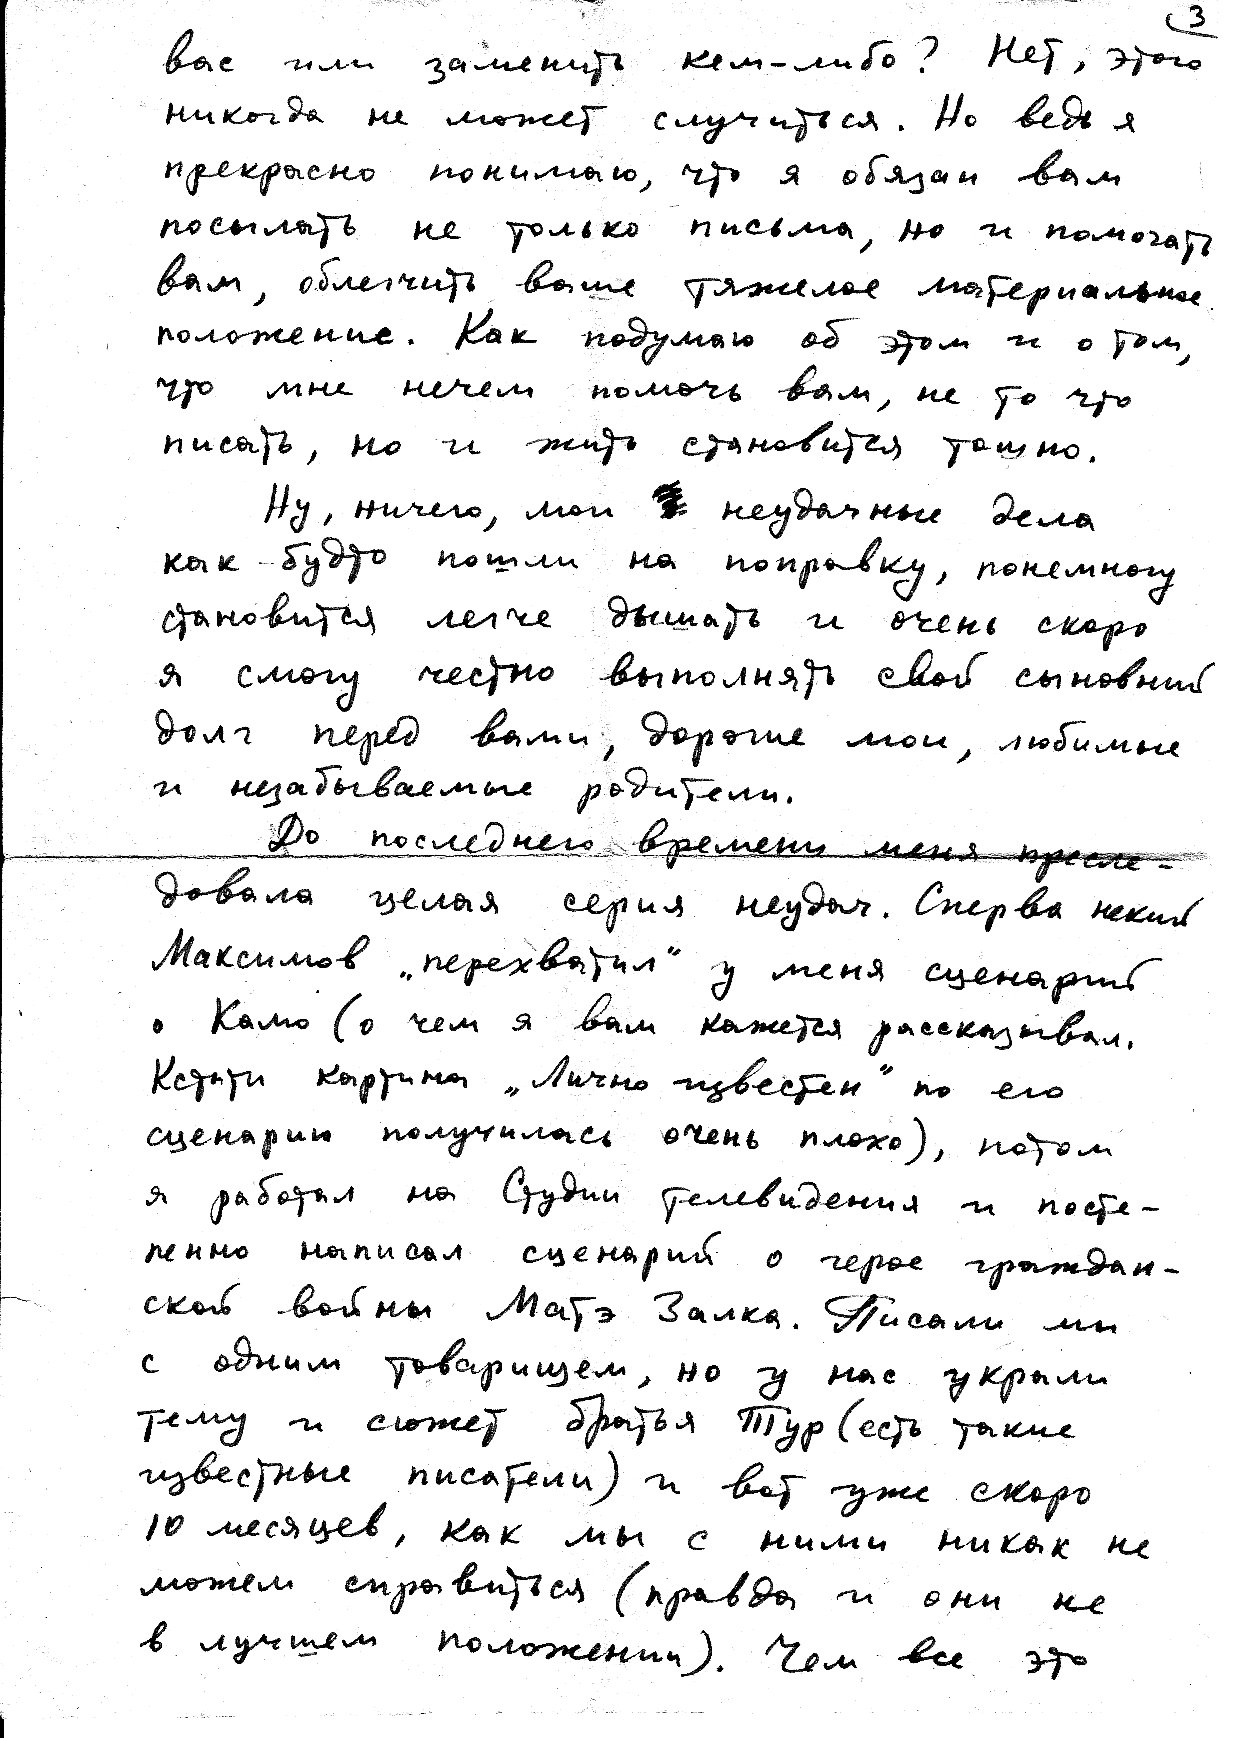 3
вас или заменить кем-либо? Нет, этого
никогда не может случиться. Но ведь я
прекрасно понимаю, что я обязан вам
посылать не только письма, но и помогать
вам, облегчить ваше тяжелое материальное
положение. Как подумаю об этом и о том,
что мне нечем помочь вам, не то что
писать, но и жить становится тошно.
Ну, ничего, мои неудачные дела
как-будто пошли на поправку, понемногу
становится легче дышать и очень скоро
я смогу честно выполнять свой сыновний
долг перед вами, дорогие мои, любимые
и незабываемые родители.
До последнего времени меня пресле-
довала целая серия неудач. Сперва некий
Максимов „перехватил" у меня сценарий
о Камо (о чем я вам кажется рассказывал.
Кстати картина „Лично известен" по его
сценарию получилась очень плохо), потом
я работал на Студии телевидения и посте-
пенно написал сценарий о герое граждан-
ской войны Матэ Залка. Писали мы
с одним товарищем, но у нас украли
тему и сюжет братья Тур (есть такие
известные писатели) и вот уже скоро
10 месяцев, как мы с ними никак не
можем справиться (правда и они не
в лучшем положении). Чем все это